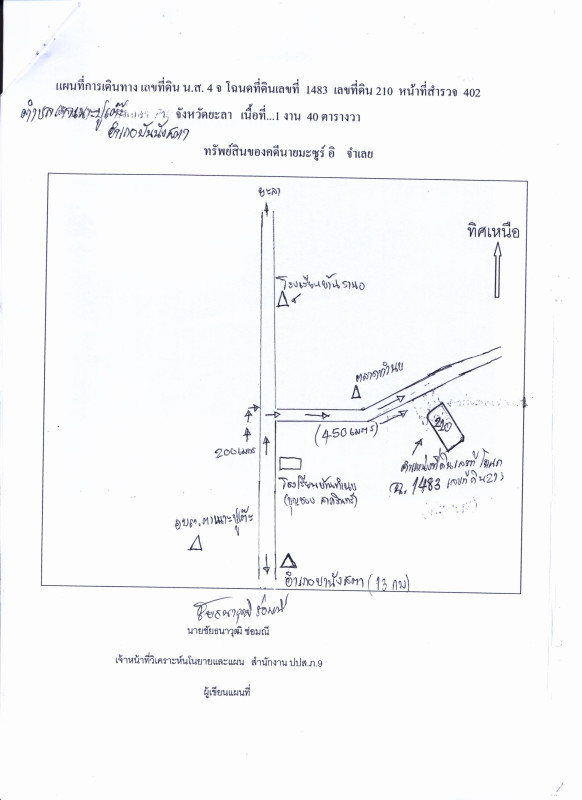 แผนที่การเดินทาง เลขที่ดิน น.ส. 4 จ โฉนดที่ดินเลขที่ 1483 เลขที่ดิน 210 หน้าที่สำรวจ 402
ตำบลตาเนาะปูเต๊ะ จังหวัดยะลา เนื้อที่...1 งาน 40 ตารางวา
อำเภอบันนังสตา
ทรัพย์สินของคดีนายมะซูร์ อิ จำเลย
ยะลา
ทิศเหนือ
โรงเรียนบ้านรานอ
ตลาดทำนบ
(450 เมตร)
210
200 เมตร
ตำแหน่งที่ดินเลขที่ โฉนด
ฉ. 1483 เลขที่ดิน 210
โรงเรียนบ้านทำนบ
อบต.ตาเนาะปูเต๊ะ
อำเภอบานังสตา (13 กม)
นายชัยธนาวุฒิ ช่อมณี
เจ้าหน้าที่วิเคราะห์นโนยายและแผน สำนักงาน ปปส.ภ.9
ผู้เขียนแผนที่